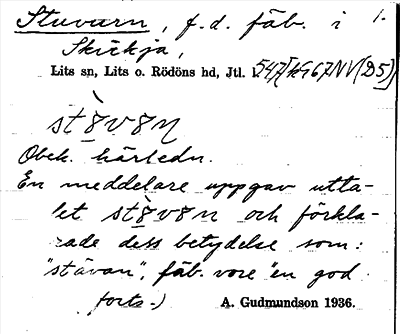 Stuvarn, f.d. fäb. i 1.
Skickja,
Lits sn, Lits o. Rödöns hd, Jtl. l.
Obek. härledn.
En meddelare uppgav utta-
let och förkla-
rade dess betydelse som:
"stävan", fäb. vore "en god
forts.)
A. Gudmundson 1936.